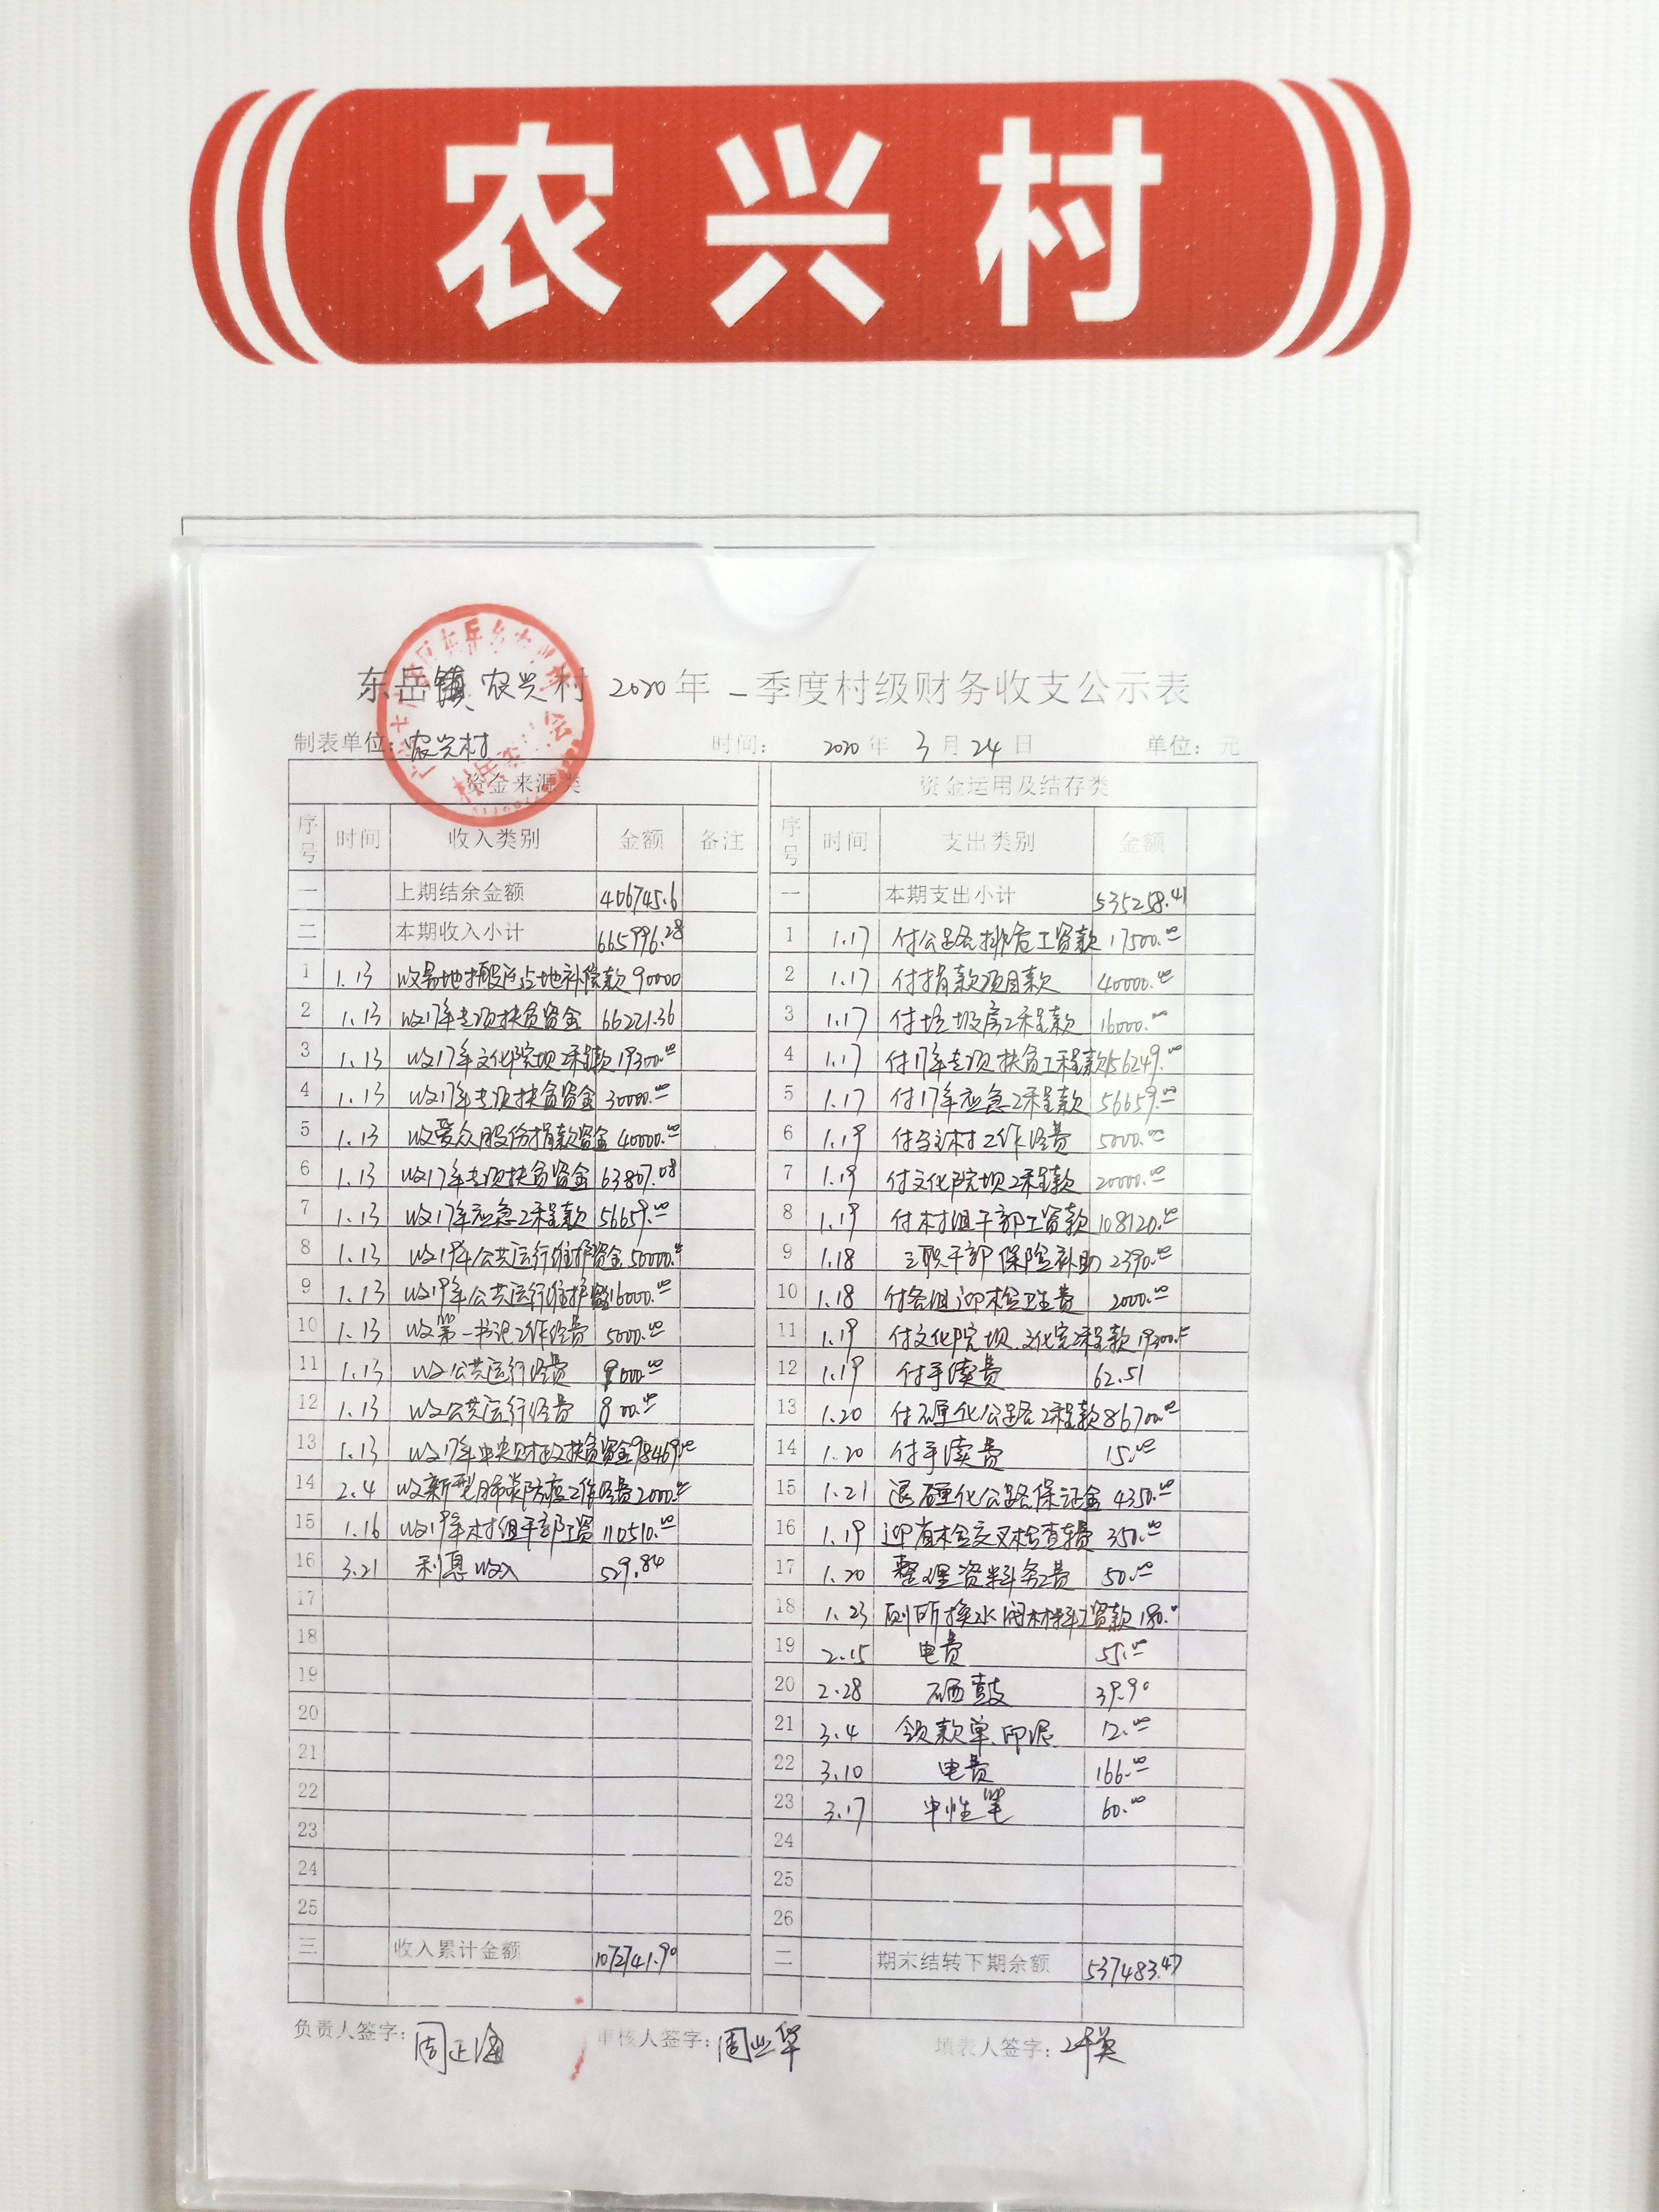 农兴村
东岳镇农兴村 2020年一季度村级财务收支公示表
制表单位：农兴村 时间： 2020年3月24日 单位：元
资金来源类 资金运用及结存类
序号 时间 收入类别 金额 备注 序号 时间 支出类别 金额
一 上期结余金额 406745.6 一 本期支出小计 535258.41
二 本期收入小计 665996.28 1 1.17 付公路排危工资款 17500.00
1 1.13 收易地搬迁占地补偿款 90000 2 1.17 付捐款项目款 40000.00
2 1.13 收17年专项扶贫资金 66221.36 3 1.17 付垃圾房工程款 16000.00
3 1.13 收17年文化院坝工程款 19300.00 4 1.17 付17年专项扶贫工程款 156249.00
4 1.13 收17年专项扶贫资金 30000.00 5 1.17 付17年应急工程款 56659.00
5 1.13 收爱众股份捐款资金 40000.00 6 1.19 付驻村工作经费 5000.00
6 1.13 收17年专项扶贫资金 63807.08 7 1.19 付文化院坝工程款 20000.00
7 1.13 收17年应急工程款 56659.00 8 1.19 付村组干部工资款 108120.00
8 1.13 收19年公共运行维护资金 50000.00 9 1.18 三职干部保险补助 2390.00
9 1.13 收19年公共运行维护资金 16000.00 10 1.18 付各组迎检卫生费 2000.00
10 1.13 收第一书记工作经费 5000.00 11 1.19 付文化院坝、文化室工程款 19300.00
11 1.13 收公共运行经费 000.00 12 1.19 付手续费 62.51
12 1.13 收公共运行经费 800.00 13 1.20 付硬化公路工程款 86700.00
13 1.13 收17年中央财政扶贫资金 98469.00 14 1.20 付手续费 15.00
14 2.4 收新型肺炎防疫工作经费 2000.00 15 1.21 退硬化公路保证金 4350.00
15 1.16 收19年村组干部工资 110510.00 16 1.19 迎省检交叉检查费 350.00
16 3.21 利息收入 529.84 17 1.20 整理资料务工费 50.00
17 18 1.23 厕所换水阀材料工资款 180.00
18 19 2.15 电费 55.00
19 20 2.28 硒鼓 39.90
20 21 3.4 领款单、印泥 12.00
21 22 3.10 电费 166.00
22 23 3.17 中性笔 60.00
23 24
24 25
25 26
三 收入累计金额 1072741.90 二 期末结转下期余额 537483.47
负责人签字：周正海 审核人签字：周业华 填表人签字：